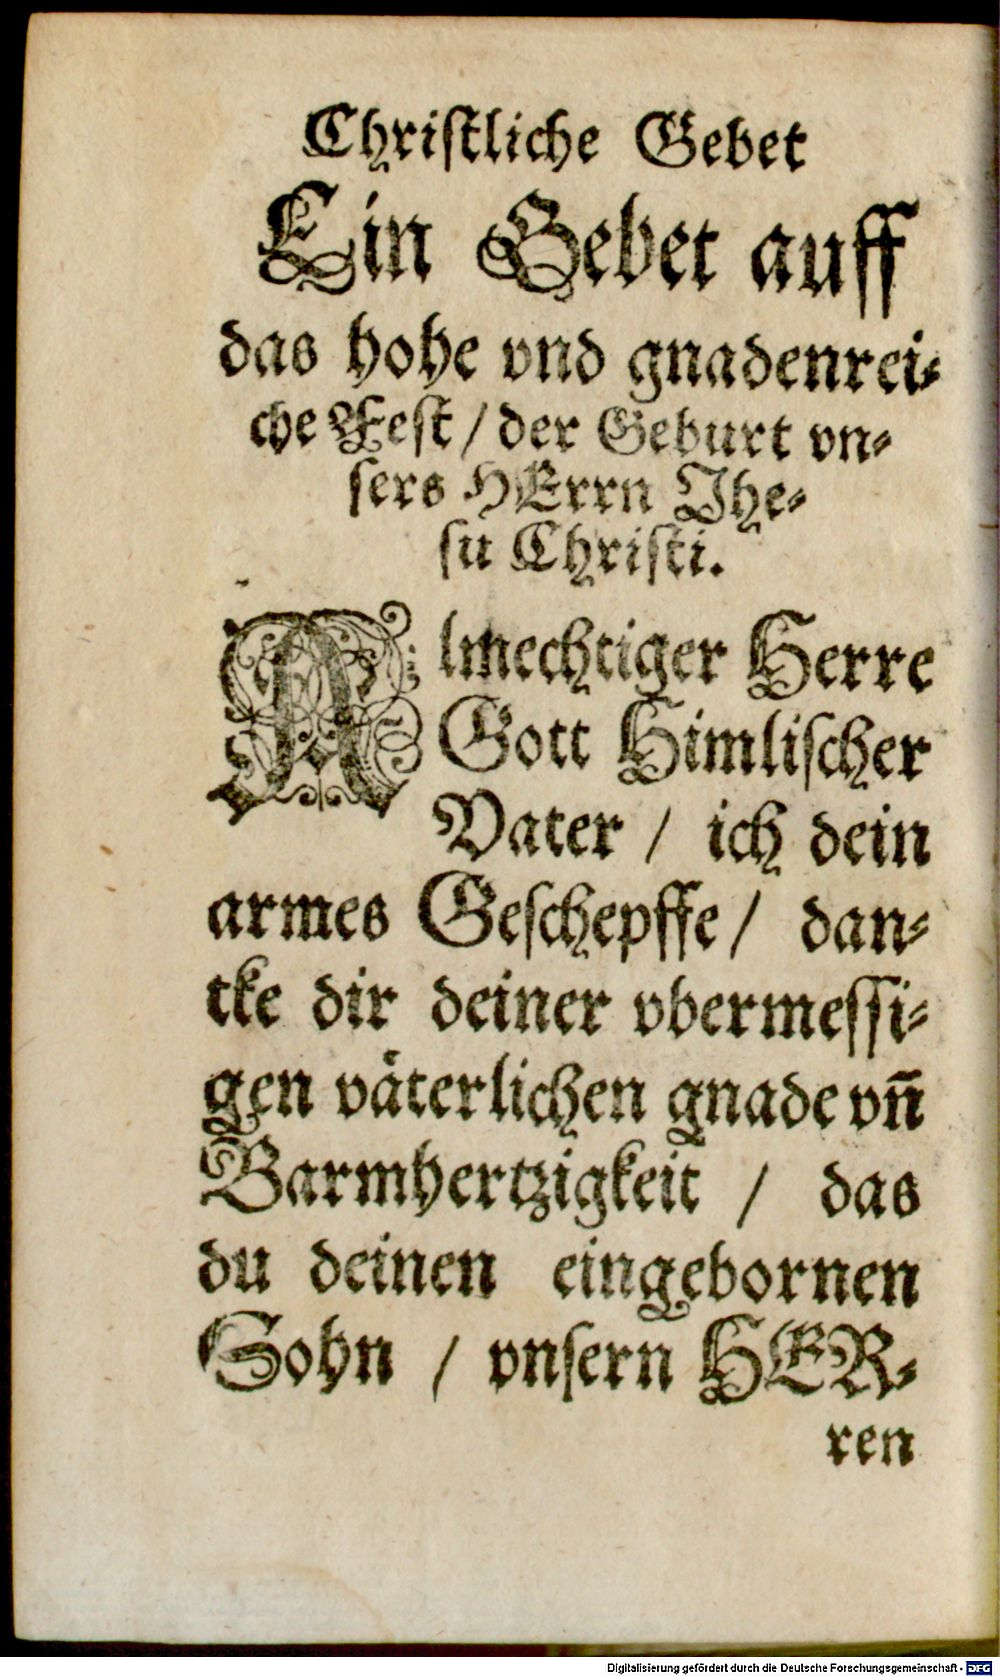 Christliche Gebet
Ein Gebet auff
das hohe vnd gnadenrei-
che Fest / der Geburt vn-
sers HErrn Jhe-
su Christi.
Almechtiger Herre
Gott Himlischer
Vater / ich dein
armes Geschepffe / dan-
cke dir deiner vbermessi-
gen väterlichen gnade vn̄
Barmhertzigkeit / das
du deinen eingebornen
Sohn / vnsern HER-
ren
Digitalisierung gefördert durch die Deutsche Forschungsgemeinschaft - DFG